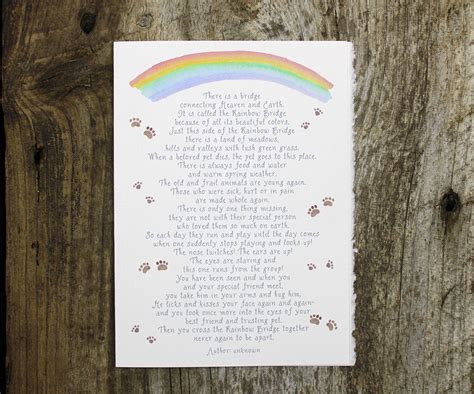 There is a bridge
connecting Heaven and Earth.
It is called the Rainbow Bridge
because of all its beautiful colors.
Just this side of the Rainbow Bridge
there is a land of meadows,
hills and valleys with lush green grass.
When a beloved pet dies, the pet goes to this place.
There is always food and water
and warm spring weather.
The old and frail animals are young again.
Those who were sick, hurt or in pain
are made whole again.
There is only one thing missing,
they are not with their special person
who loved them so much on earth.
So each day they run and play until the day comes
when one suddenly stops playing and looks up!
The nose twitches! The ears are up!
The eyes are staring and
this one runs from the group!
You have been seen and when you
and your special friend meet,
you take him in your arms and hug him.
He licks and kisses your face again and again-
and you look once more into the eyes of your
best friend and trusting pet.
Then you cross the Rainbow Bridge together
never again to be apart.
Author unknown